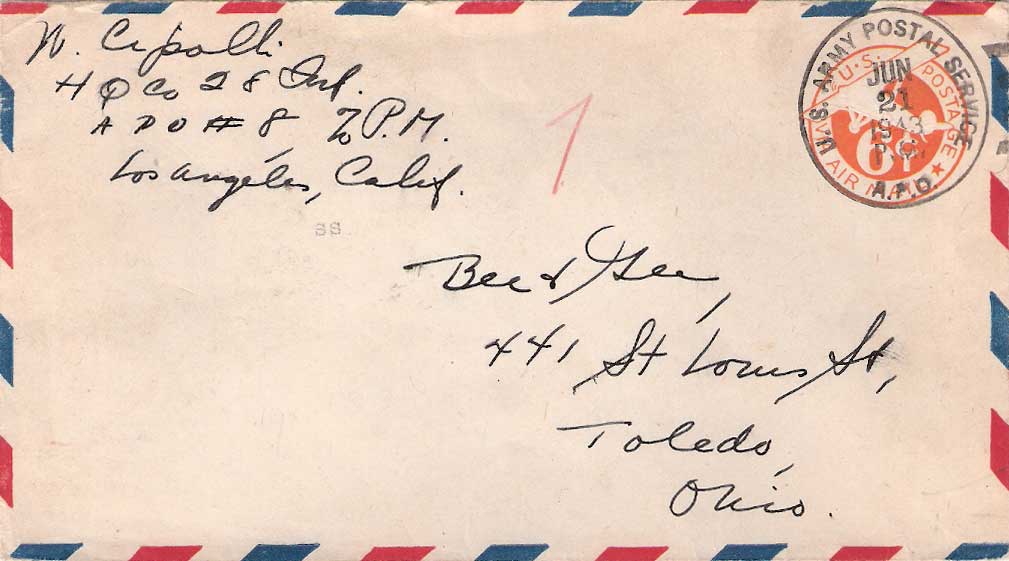 N. Cipolli
HQ Co 28 Inf.
APO # 8 % P.M.
Los Angeles, Calif.
1
SS
U.S. ARMY POSTAL SERVICE
JUN
21
1943
A.P.O.
U.S. POSTAGE
6¢
VIA AIR MAIL
Bee & Gee,
441 St Louis St,
Toledo,
Ohio.